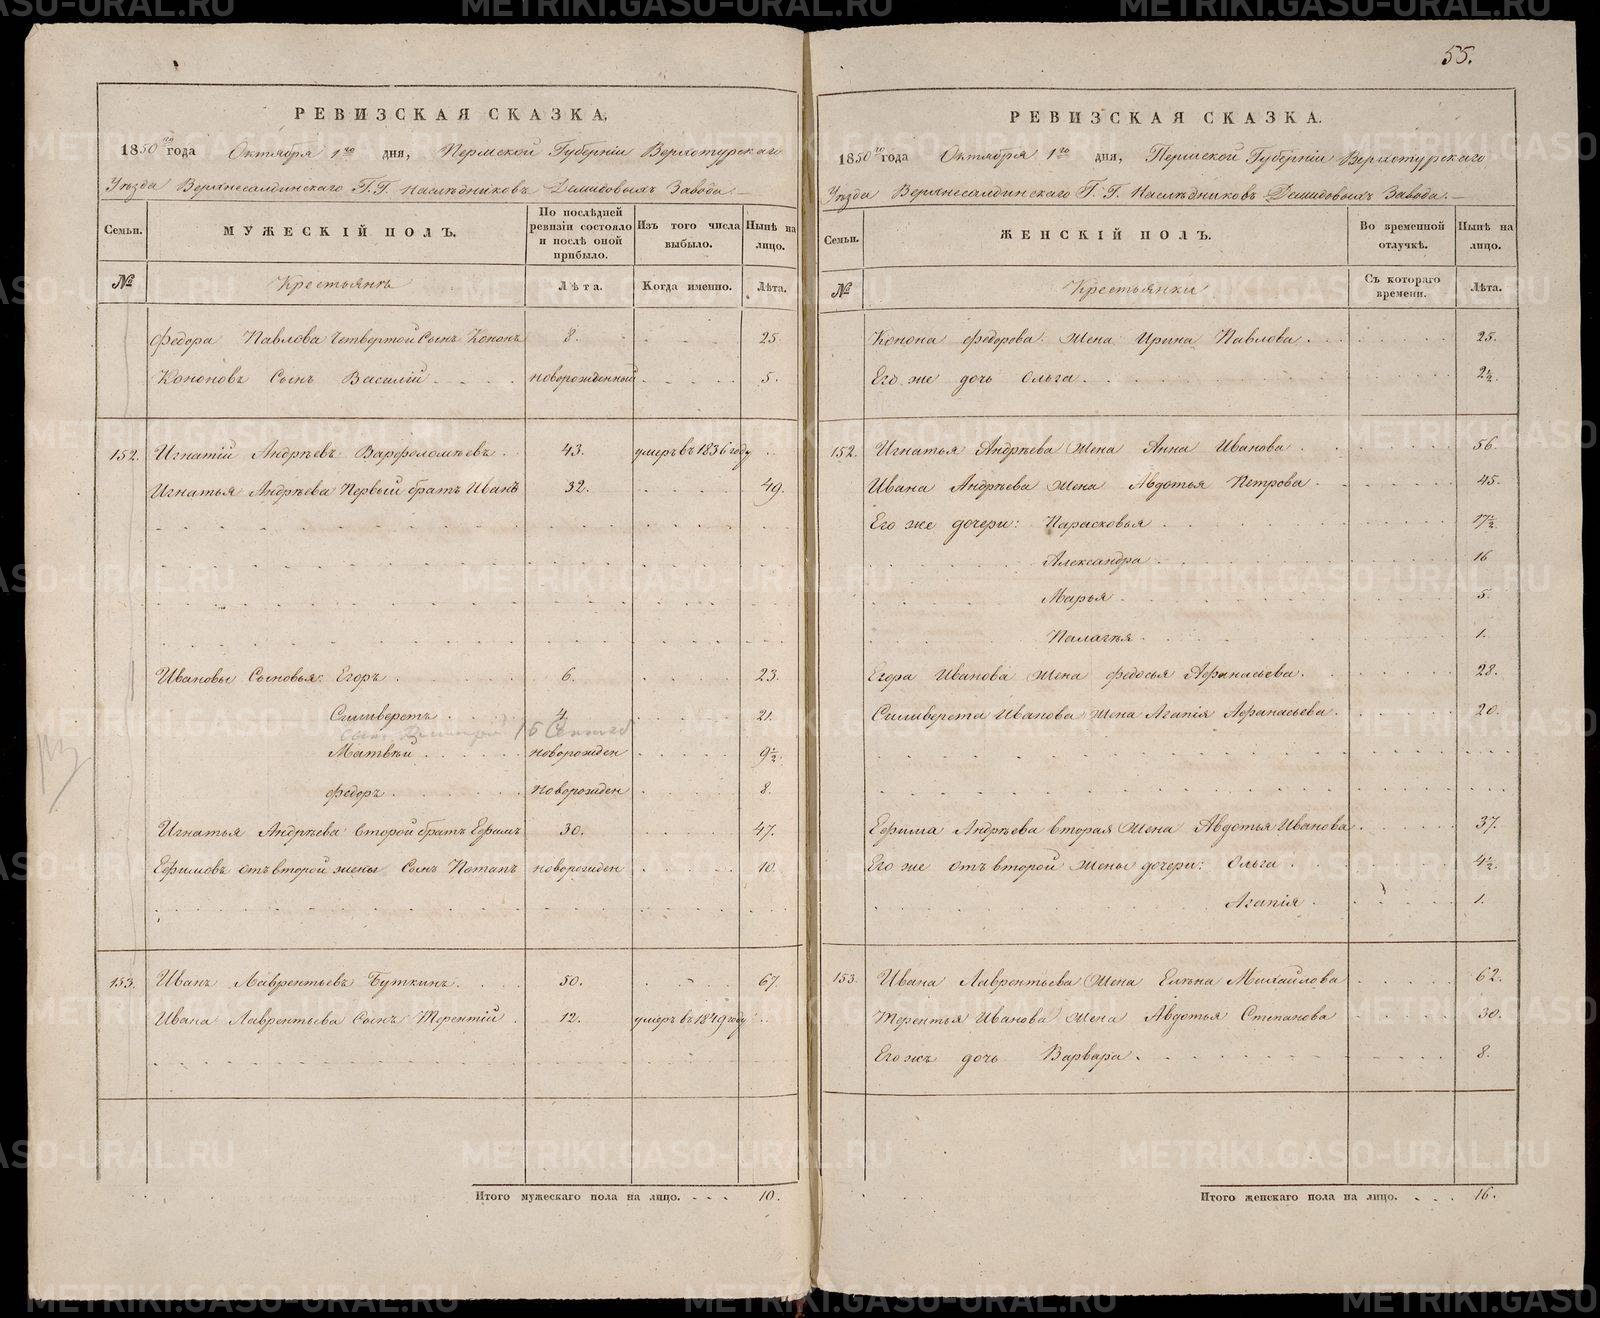 55.
РЕВИЗСКАЯ СКАЗКА,
1850го года Октября 1го дня, Пермской Губерніи Верхотурскаго
Уѣзда Верхнесалдинскаго Г.Г. Наслѣдниковъ Демидовыхъ Завода.
Семьи.
МУЖЕСКІЙ ПОЛЪ.
По послѣдней ревизіи состояло и послѣ оной прибыло.
Изъ того числа выбыло.
Нынѣ на лицо.
№
Крестьянъ
Лѣта.
Когда именно.
Лѣта.
Федора Павлова Четвертой Сынъ Кононъ 8. 25
Кононовъ Сынъ Василій новорожденный 5.
152. Игнатій Андрѣевъ Варфоломѣевъ 43. умеръ въ 1836 году
Игнатья Андрѣева Первый братъ Иванъ 32. 49.
Ивановы Сыновья: Егоръ 6. 23.
Силиверстъ 4 21.
15
Матвѣй новорожден 9½
Федоръ новорожден 8.
Игнатья Андрѣева второй братъ Ефимъ 30. 47.
Ефимовъ отъ второй жены Сынъ Потапъ новорожден 10.
153. Иванъ Лаврентьевъ Буткинъ. 50. 67.
Ивана Лаврентьева Сынъ Терентій 12. умеръ въ 1849 году
Итого мужескаго пола на лицо. 10.
РЕВИЗСКАЯ СКАЗКА.
1850го года Октября 1го дня, Пермской Губерніи Верхотурскаго
Уѣзда Верхнесалдинскаго Г.Г. Наслѣдниковъ Демидовыхъ Завода.
Семьи.
ЖЕНСКІЙ ПОЛЪ.
Во временной отлучкѣ.
Нынѣ на лицо.
№
Крестьянки
Съ котораго времени.
Лѣта.
Конона Федорова Жена Ирина Павлова 25.
Его же дочь Ольга 2½.
152. Игнатья Андрѣева Жена Анна Иванова 56.
Ивана Андрѣева Жена Авдотья Петрова 45.
Его же дочери: Парасковья 17½
Александра 16
Марья 5.
Палагѣя 1.
Егора Иванова Жена Федосья Афанасьева. 28.
Силиверста Иванова Жена Агапія Афанасьева. 20.
Ефима Андрѣева вторая Жена Авдотья Иванова 37.
Его же отъ второй Жены дочери: Ольга 4½.
Агапія 1.
153. Ивана Лаврентьева Жена Елѣна Михайлова 62.
Терентья Иванова Жена Авдотья Степанова 30.
Его жъ дочь Варвара. 8.
Итого женскаго пола на лицо. 16.
METRIKI.GASO-URAL.RU